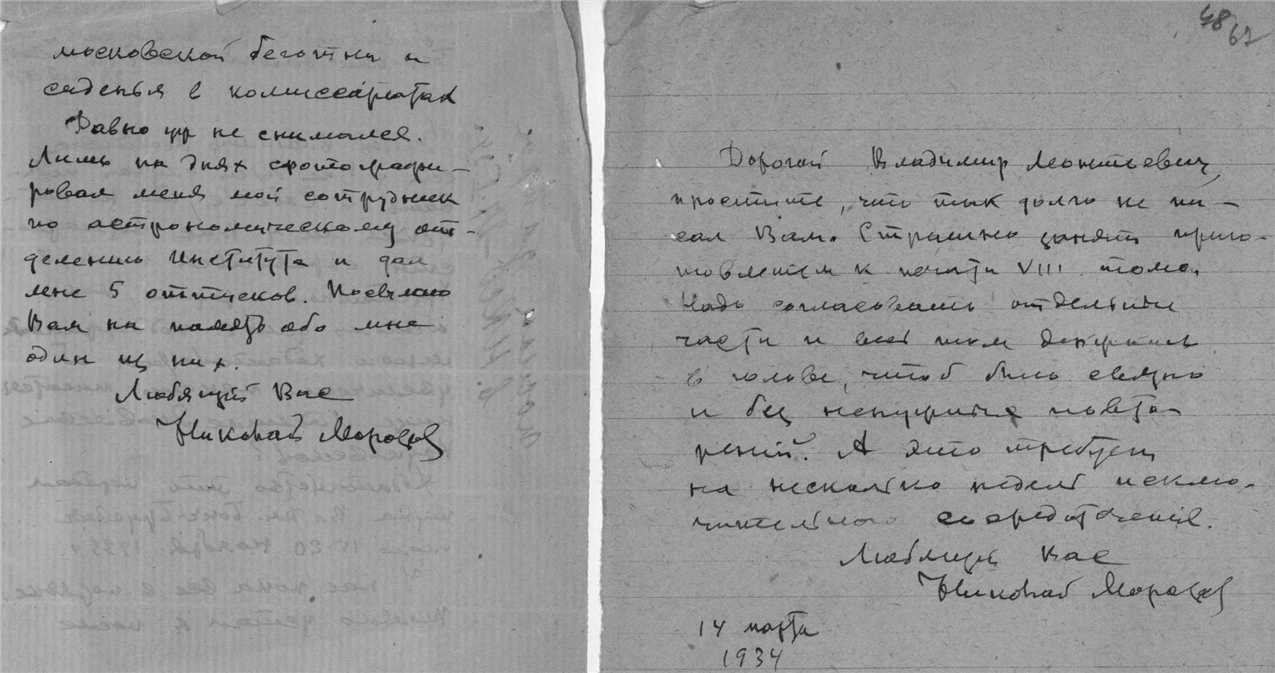 московской беготни и
сиденья в комиссариатах
Давно уж не снимался.
Лишь на днях сфотографи-
ровал меня мой сотрудник
по астрономическому от-
делению Института и дал
мне 5 оттисков. Посылаю
Вам на память обо мне
один из них.
Любящий Вас
Николай Морозов
48
67
Дорогой Владимир Леонтьевич,
простите, что так долго не пи-
сал Вам. Страшно занят приго-
товлением к печати VIII тома.
Надо согласовать отдельные
части и всё
в голове, чтоб было связно
и без ненужных повто-
рений. А это требует
на несколько недель исклю-
чительного сосредоточения.
Любящий Вас
Николай Морозов
14 марта
1934